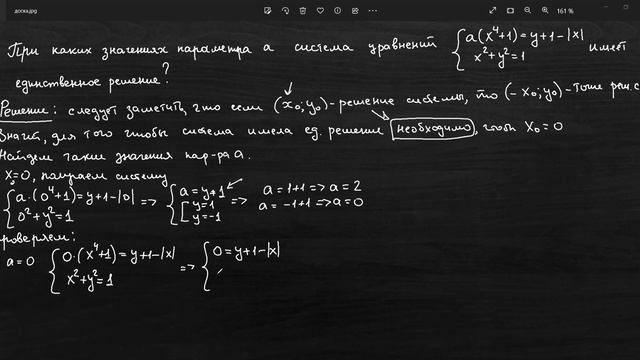 доска.jpg
161 %
При каких значениях параметра a система уравнений { a(x⁴+1)=y+1-|x| имеет
x²+y²=1
единственное решение?
Решение: следует заметить, что если (x₀; y₀)-решение системы, то (-x₀; y₀)-тоже реш. с
Значит, для того чтобы система имела ед. решение необходимо, чтоб x₀=0
Найдем такие значения пар-ра a.
x=0, получаем систему
{ a·(0⁴+1)=y+1-|0| => { a=y+1 => a=1+1=>a=2
0²+y²=1 [ y=1 y=-1 a=-1+1=>a=0
роверяем:
a=0 { 0·(x⁴+1)=y+1-|x| => { 0=y+1-|x|
x²+y²=1